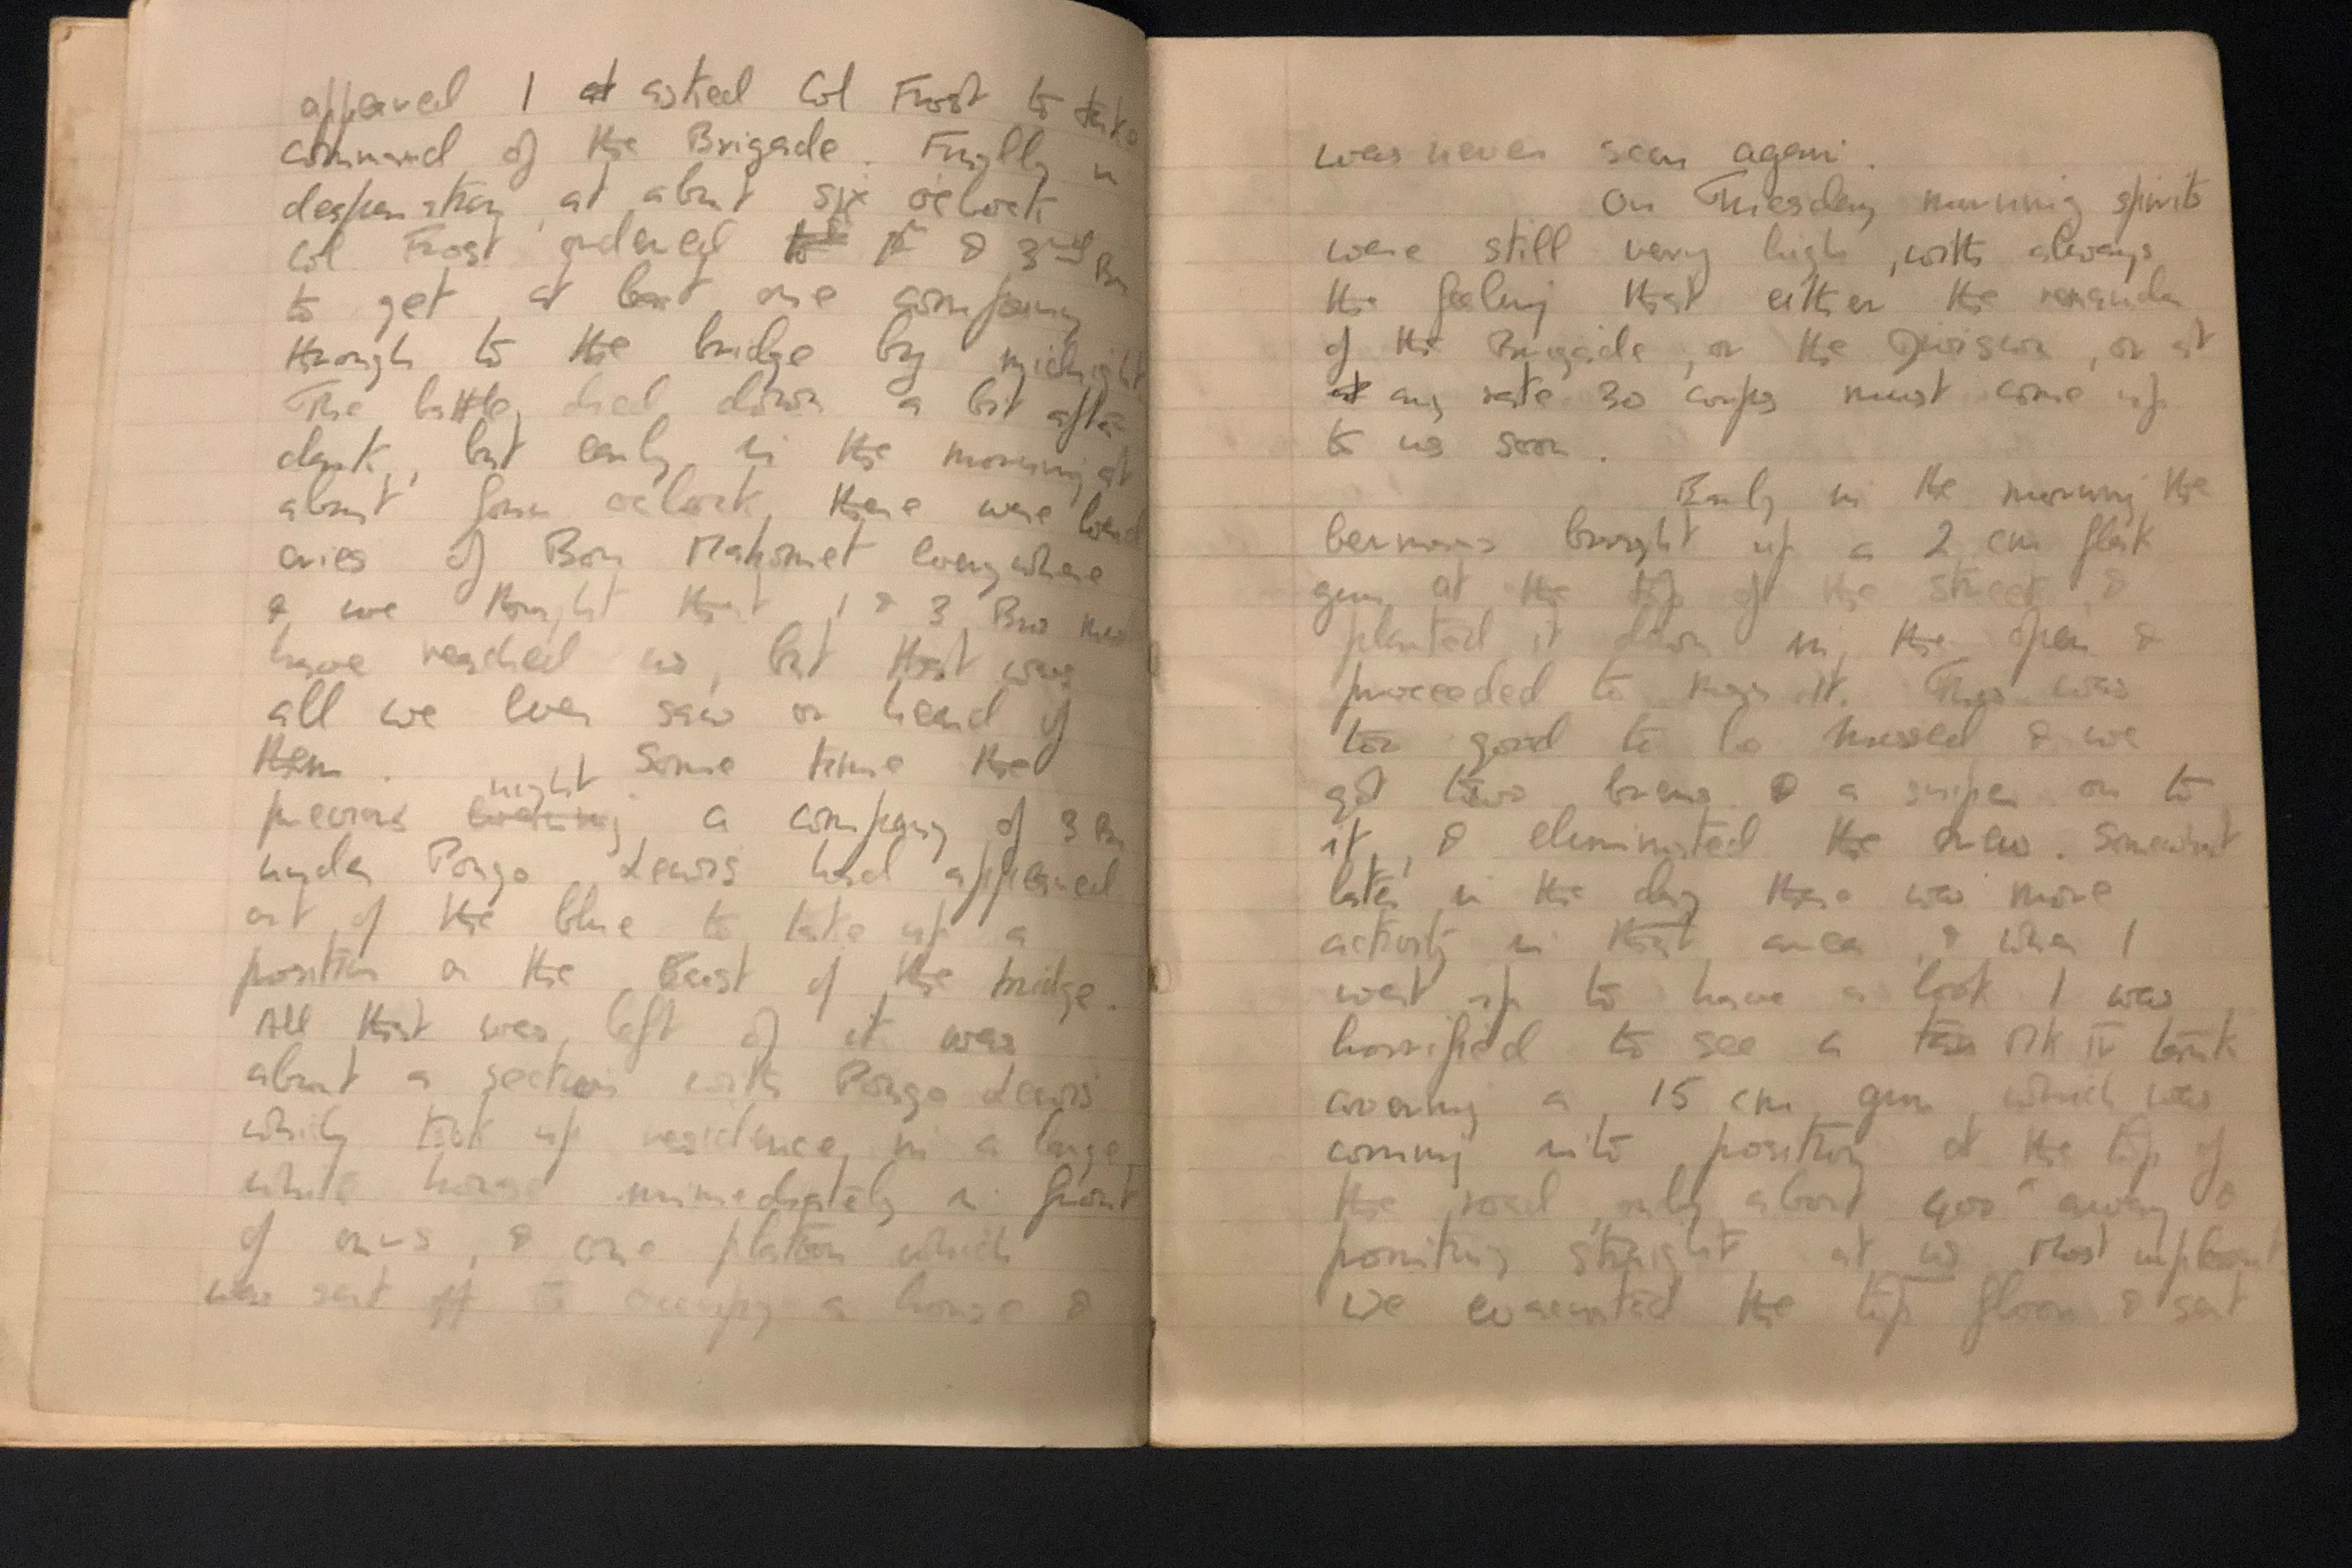 appeared I at asked Col Frost to take
command of the Brigade. Finally in
desperation, at about six oclock
Col Frost ordered to 1st & 3rd Bn
to get at least one company
through to the bridge by midnight
The battle, died down a bit after
dark, but early in the morning at
about four oclock, there were loud
cries of Boy Mahomet everywhere
& we thought that 1 & 3 Bns must
have reached us, but that was
all we ever saw or heard of
them. Some time the
night
previous evening a company of 3 Bn
under Pongo Lewis had appeared
out of the blue to take up a
position on the East of the bridge.
All that was left of it was
about a section with Pongo Lewis
which took up residence in a large
white house immediately in front
of ours, & one platoon which
was sent off to occupy a house &
was never seen again.
On Tuesday morning spirits
were still very high, with always
the feeling that either the remainder
of the Brigade, or the Division, or at
at any rate 30 corps must come up
to us soon.
Early in the morning the
Germans brought up a 2 cm flak
gun at the top of the street, &
planted it down in the open &
proceeded to man it. This was
too good to be missed & we
got two brens & a sniper on to
it, & eliminated the crew. Somewhat
later in the day there was more
activity in that area, & when I
went up to have a look I was
horrified to see a tan Mk IV tank
covering a 15 cm gun, which was
coming into position at the top of
the road, only about 400 away &
pointing straight at us. Most unpleasant
We evacuated the top floor & sent